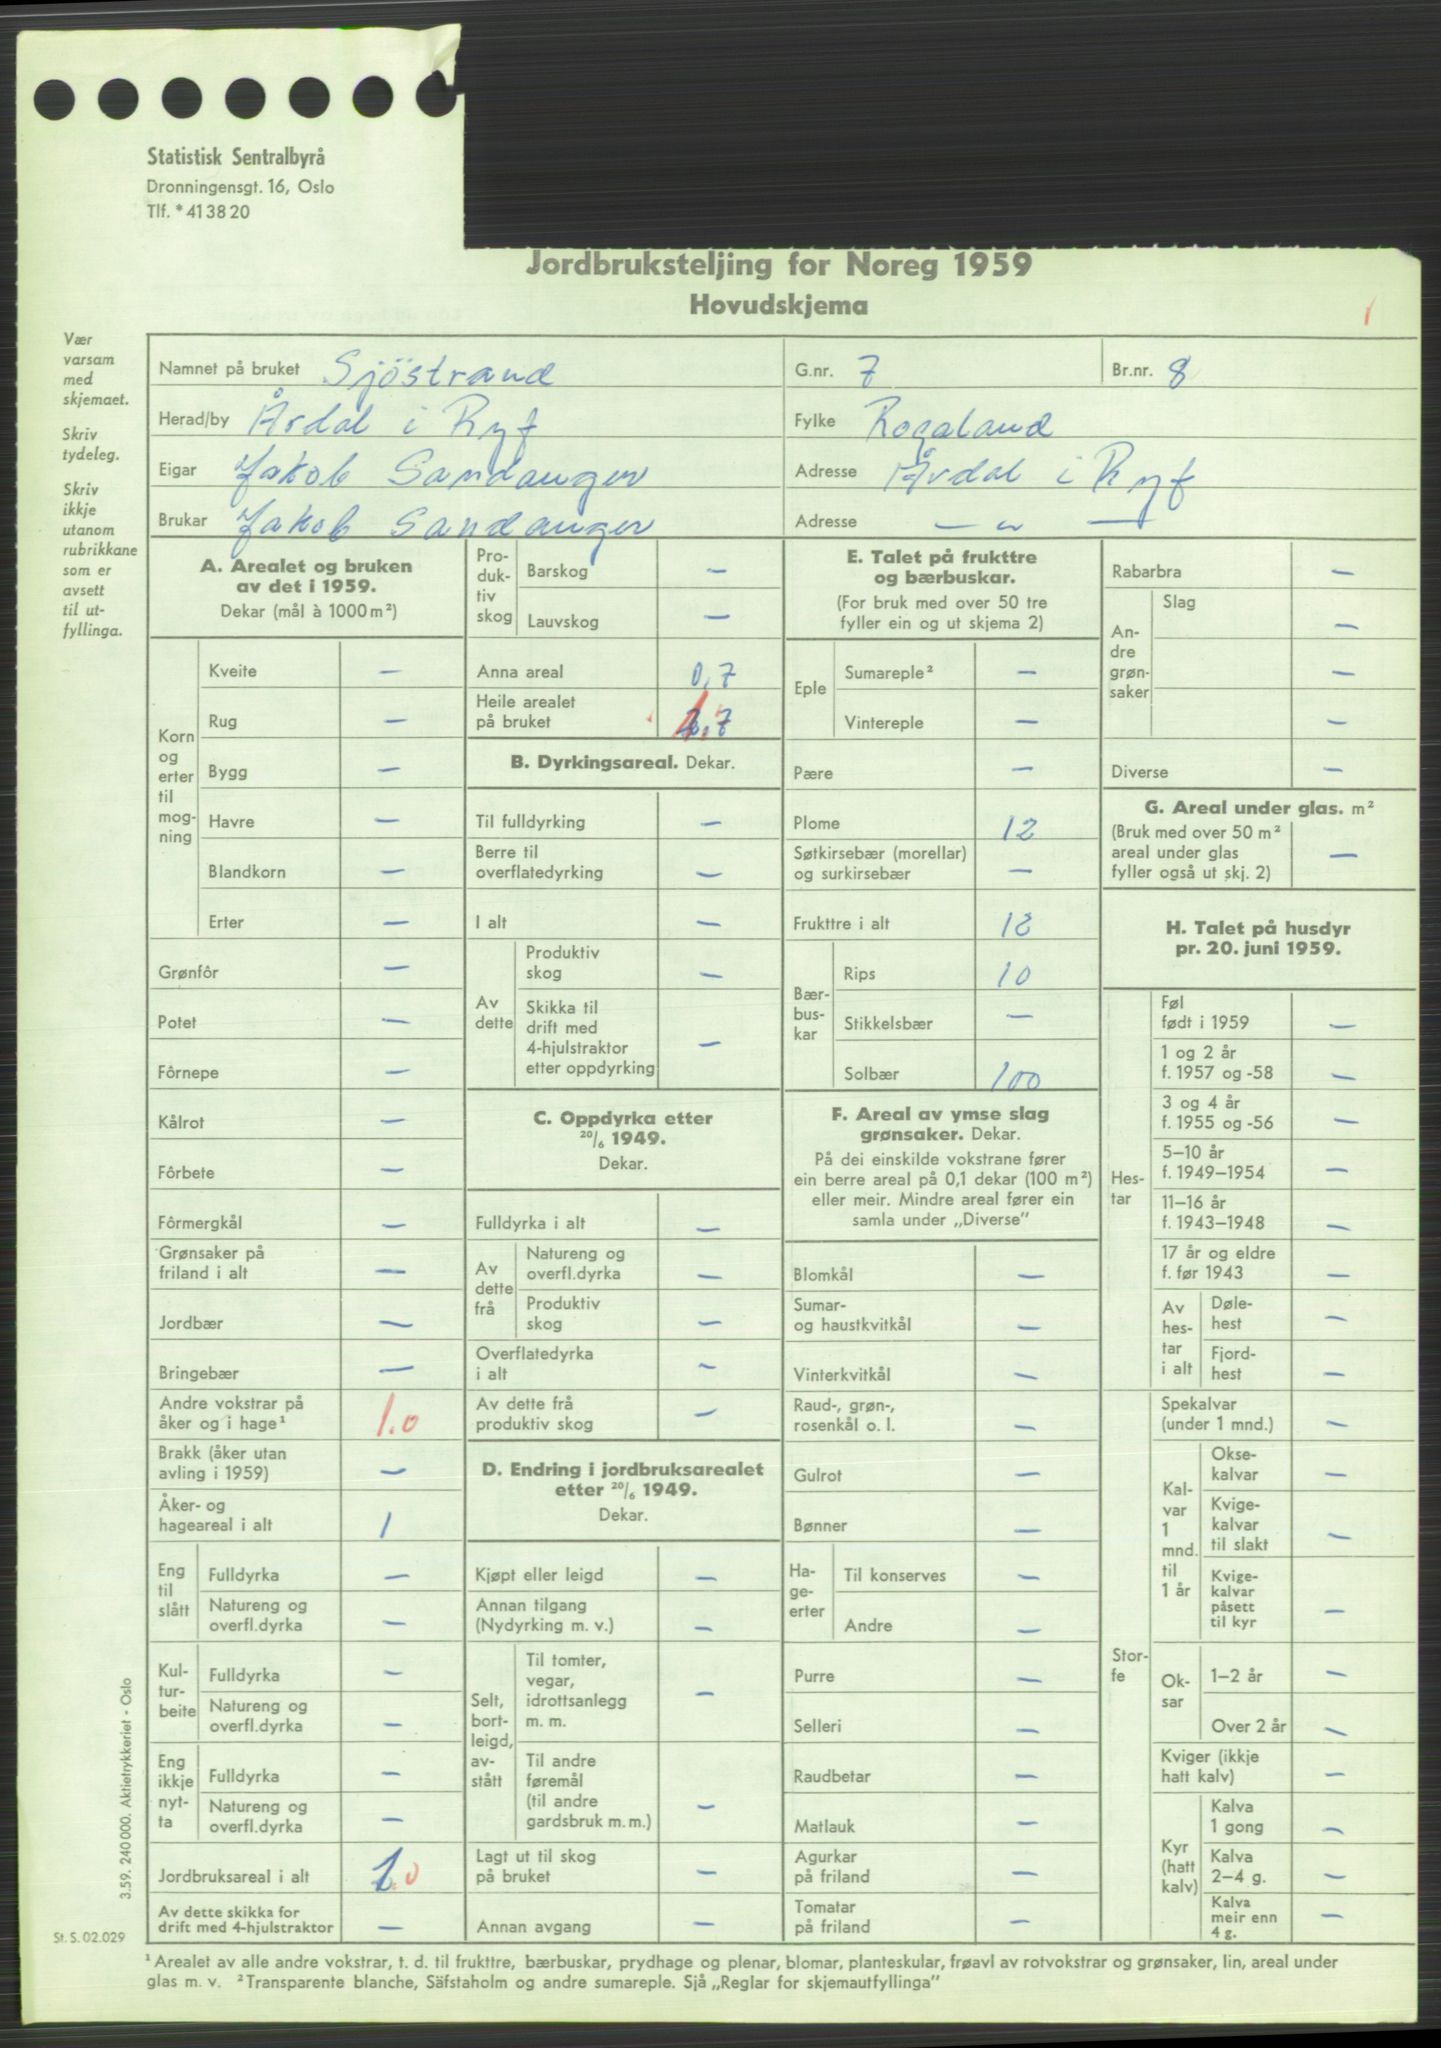 Statistisk Sentralbyrå
Dronningensgt. 16, Oslo
Tlf. * 41 38 20
Jordbruksteljing for Noreg 1959
Hovudskjema
1
Vær
varsam
med
skjemaet.
Skriv
tydeleg.
Skriv
ikkje
utanom
rubrikkane
som er
avsett
til ut-
fyllinga.
Namnet på bruket Sjöstrand G.nr. 7 Br.nr. 8
Herad/by Årdal i Ryf Fylke Rogaland
Eigar Jakob Sandanger Adresse Årdal i Ryf
Brukar Jakob Sandanger Adresse — " —
A. Arealet og bruken
av det i 1959.
Dekar (mål à 1000 m²)
Korn
og
erter
til
mog-
ning
Kveite —
Rug —
Bygg —
Havre —
Blandkorn —
Erter —
Grønfôr —
Potet —
Fôrnepe —
Kålrot —
Fôrbete —
Fôrmergkål —
Grønsaker på
friland i alt —
Jordbær —
Bringebær —
Andre vokstrar på
åker og i hage¹ 1.0
Brakk (åker utan
avling i 1959) —
Åker- og
hageareal i alt 1
Eng
til
slått
Fulldyrka —
Natureng og
overfl.dyrka —
Kul-
tur-
beite
Fulldyrka —
Natureng og
overfl.dyrka —
Eng
ikkje
nyt-
ta
Fulldyrka —
Natureng og
overfl.dyrka —
Jordbruksareal i alt 1.0
Av dette skikka for
drift med 4-hjulstraktor —
Pro-
duk-
tiv
skog
Barskog —
Lauvskog —
Anna areal 0,7
Heile arealet
på bruket 1.7
B. Dyrkingsareal. Dekar.
Til fulldyrking —
Berre til
overflatedyrking —
I alt —
Av
dette
Produktiv
skog —
Skikka til
drift med
4-hjulstraktor
etter oppdyrking —
C. Oppdyrka etter
20/6 1949.
Dekar.
Fulldyrka i alt —
Av
dette
frå
Natureng og
overfl.dyrka —
Produktiv
skog —
Overflatedyrka
i alt —
Av dette frå
produktiv skog —
D. Endring i jordbruksarealet
etter 20/6 1949.
Dekar.
Kjøpt eller leigd —
Annan tilgang
(Nydyrking m. v.) —
Selt,
bort-
leigd,
av-
stått
Til tomter,
vegar,
idrottsanlegg
m. m. —
Til andre
føremål
(til andre
gardsbruk m. m.) —
Lagt ut til skog
på bruket —
Annan avgang —
E. Talet på frukttre
og bærbuskar.
(For bruk med over 50 tre
fyller ein og ut skjema 2)
Eple
Sumareple² —
Vintereple —
Pære —
Plome 12
Søtkirsebær (morellar)
og surkirsebær —
Frukttre i alt 12
Bær-
bus-
kar
Rips 10
Stikkelsbær —
Solbær 100
F. Areal av ymse slag
grønsaker. Dekar.
På dei einskilde vokstrane fører
ein berre areal på 0,1 dekar (100 m²)
eller meir. Mindre areal fører ein
samla under „Diverse”
Blomkål —
Sumar-
og haustkvitkål —
Vinterkvitkål —
Raud-, grøn-,
rosenkål o. l. —
Gulrot —
Bønner —
Ha-
ge-
erter
Til konserves —
Andre —
Purre —
Selleri —
Raudbetar —
Matlauk —
Agurkar
på friland —
Tomatar
på friland —
Rabarbra —
An-
dre
grøn-
saker
Slag
—
—
—
Diverse —
G. Areal under glas. m²
(Bruk med over 50 m²
areal under glas
fyller også ut skj. 2) —
H. Talet på husdyr
pr. 20. juni 1959.
Hes-
tar
Føl
født i 1959 —
1 og 2 år
f. 1957 og -58 —
3 og 4 år
f. 1955 og -56 —
5–10 år
f. 1949–1954 —
11–16 år
f. 1943–1948 —
17 år og eldre
f. før 1943 —
Av
hes-
tar
i alt
Døle-
hest —
Fjord-
hest —
Stor-
fe
Spekalvar
(under 1 mnd.) —
Kal-
var
1
mnd.
til
1 år
Okse-
kalvar —
Kvige-
kalvar
til slakt —
Kvige-
kalvar
påsett
til kyr —
Ok-
sar
1–2 år —
Over 2 år —
Kviger (ikkje
hatt kalv) —
Kyr
(hatt
kalv)
Kalva
1 gong —
Kalva
2–4 g. —
Kalva
meir enn
4 g. —
3.59. 240 000. Aktietrykkeriet - Oslo
St. S. 02.029
¹ Arealet av alle andre vokstrar, t. d. til frukttre, bærbuskar, prydhage og plenar, blomar, planteskular, frøavl av rotvokstrar og grønsaker, lin, areal under
glas m. v. ² Transparente blanche, Säfstaholm og andre sumareple. Sjå „Reglar for skjemautfyllinga”